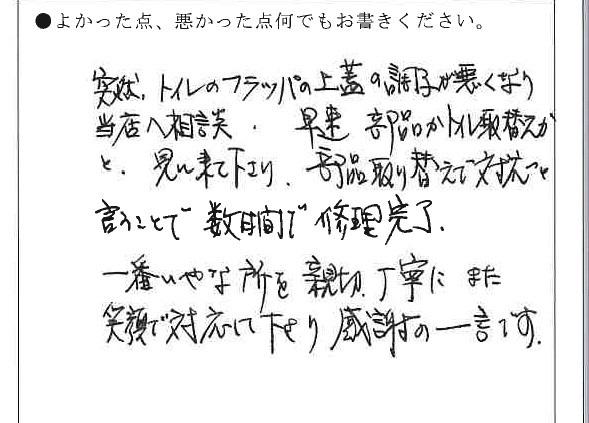 ●よかった点、悪かった点何でもお書きください。
突然、トイレのフラッパの上蓋の調子が悪くなり
当店へ相談 . 早速 部品かトイレ取替えか
と、見に来て下さり、部品取り替えで対応と
言うことで 数時間で 修理完了.
一番いやな所を 親切、丁寧に また
笑顔で対応して下さり 感謝の一言です.